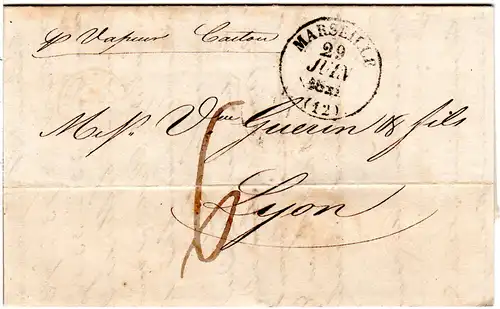 pr Vapeur Castor
MARSEILLE
29
JUIN
(12)
Mess. Vve Guerin & fils
Lyon
6